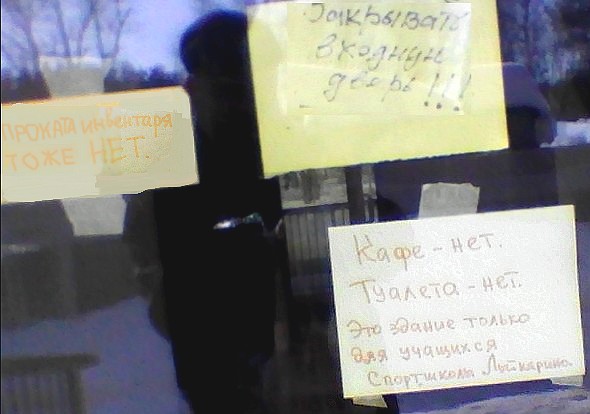 ПРОКАТА инвентаря
ТОЖЕ НЕТ.
Закрывать
входную
дверь!!!
Кафе - нет.
Туалета - нет.
Это здание только
для учащихся
Спортшколы Лыткарина